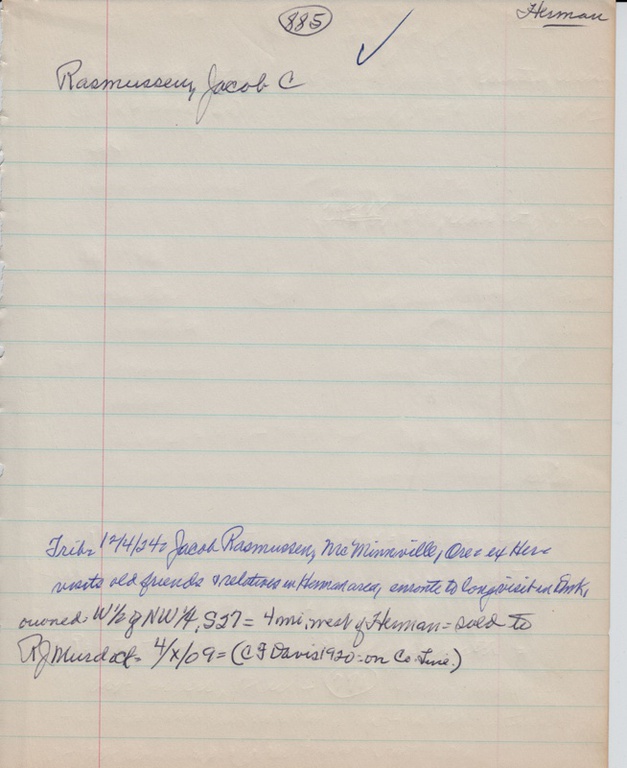 885
Herman
Rasmussen, Jacob C
Trib= 12/4/24= Jacob Rasmussen, McMinneville, Ore= ex Her=
visits old friends & relatives in Herman area, enroute to long visit in Dmk,
owned W½ of NW¼, S27 = 4 mi, west of Herman = sold to
RJ Murdock= 4/x/09= (C F Davis 1920=on Co. Line.)